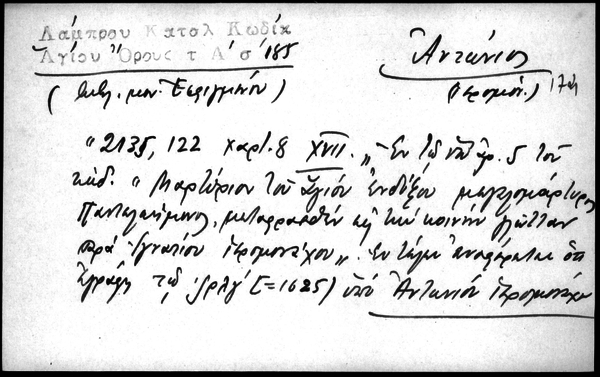 Λάμπρου Κατολ Κωδίκ
Ἁγίου Ὄρους τ Α' σ' 185
Ἀντώνιος
(βιβλ. μον. Ἐσφιγμένου)
(ἱερομόν.) 17ος
"2135, 122 χαρτ. 8 XVII. „ Ἐν τῷ ὑπ' ἀρ. 5 τοῦ
κώδ. "Μαρτύριον τοῦ ἁγίου ἐνδόξου μεγαλομάρτυρος
Παντελεήμονος, μεταφρασθὲν εἰς τὴν κοινὴν γλῶτταν
παρὰ Ἰγνατίου ἱερομονάχου„. Ἐν τέλει ἀναφέρεται ὅτι
ἐγράφη τῷ ͵ζρλγ' (=1625) ὑπὸ Ἀντωνίου ἱερομονάχου